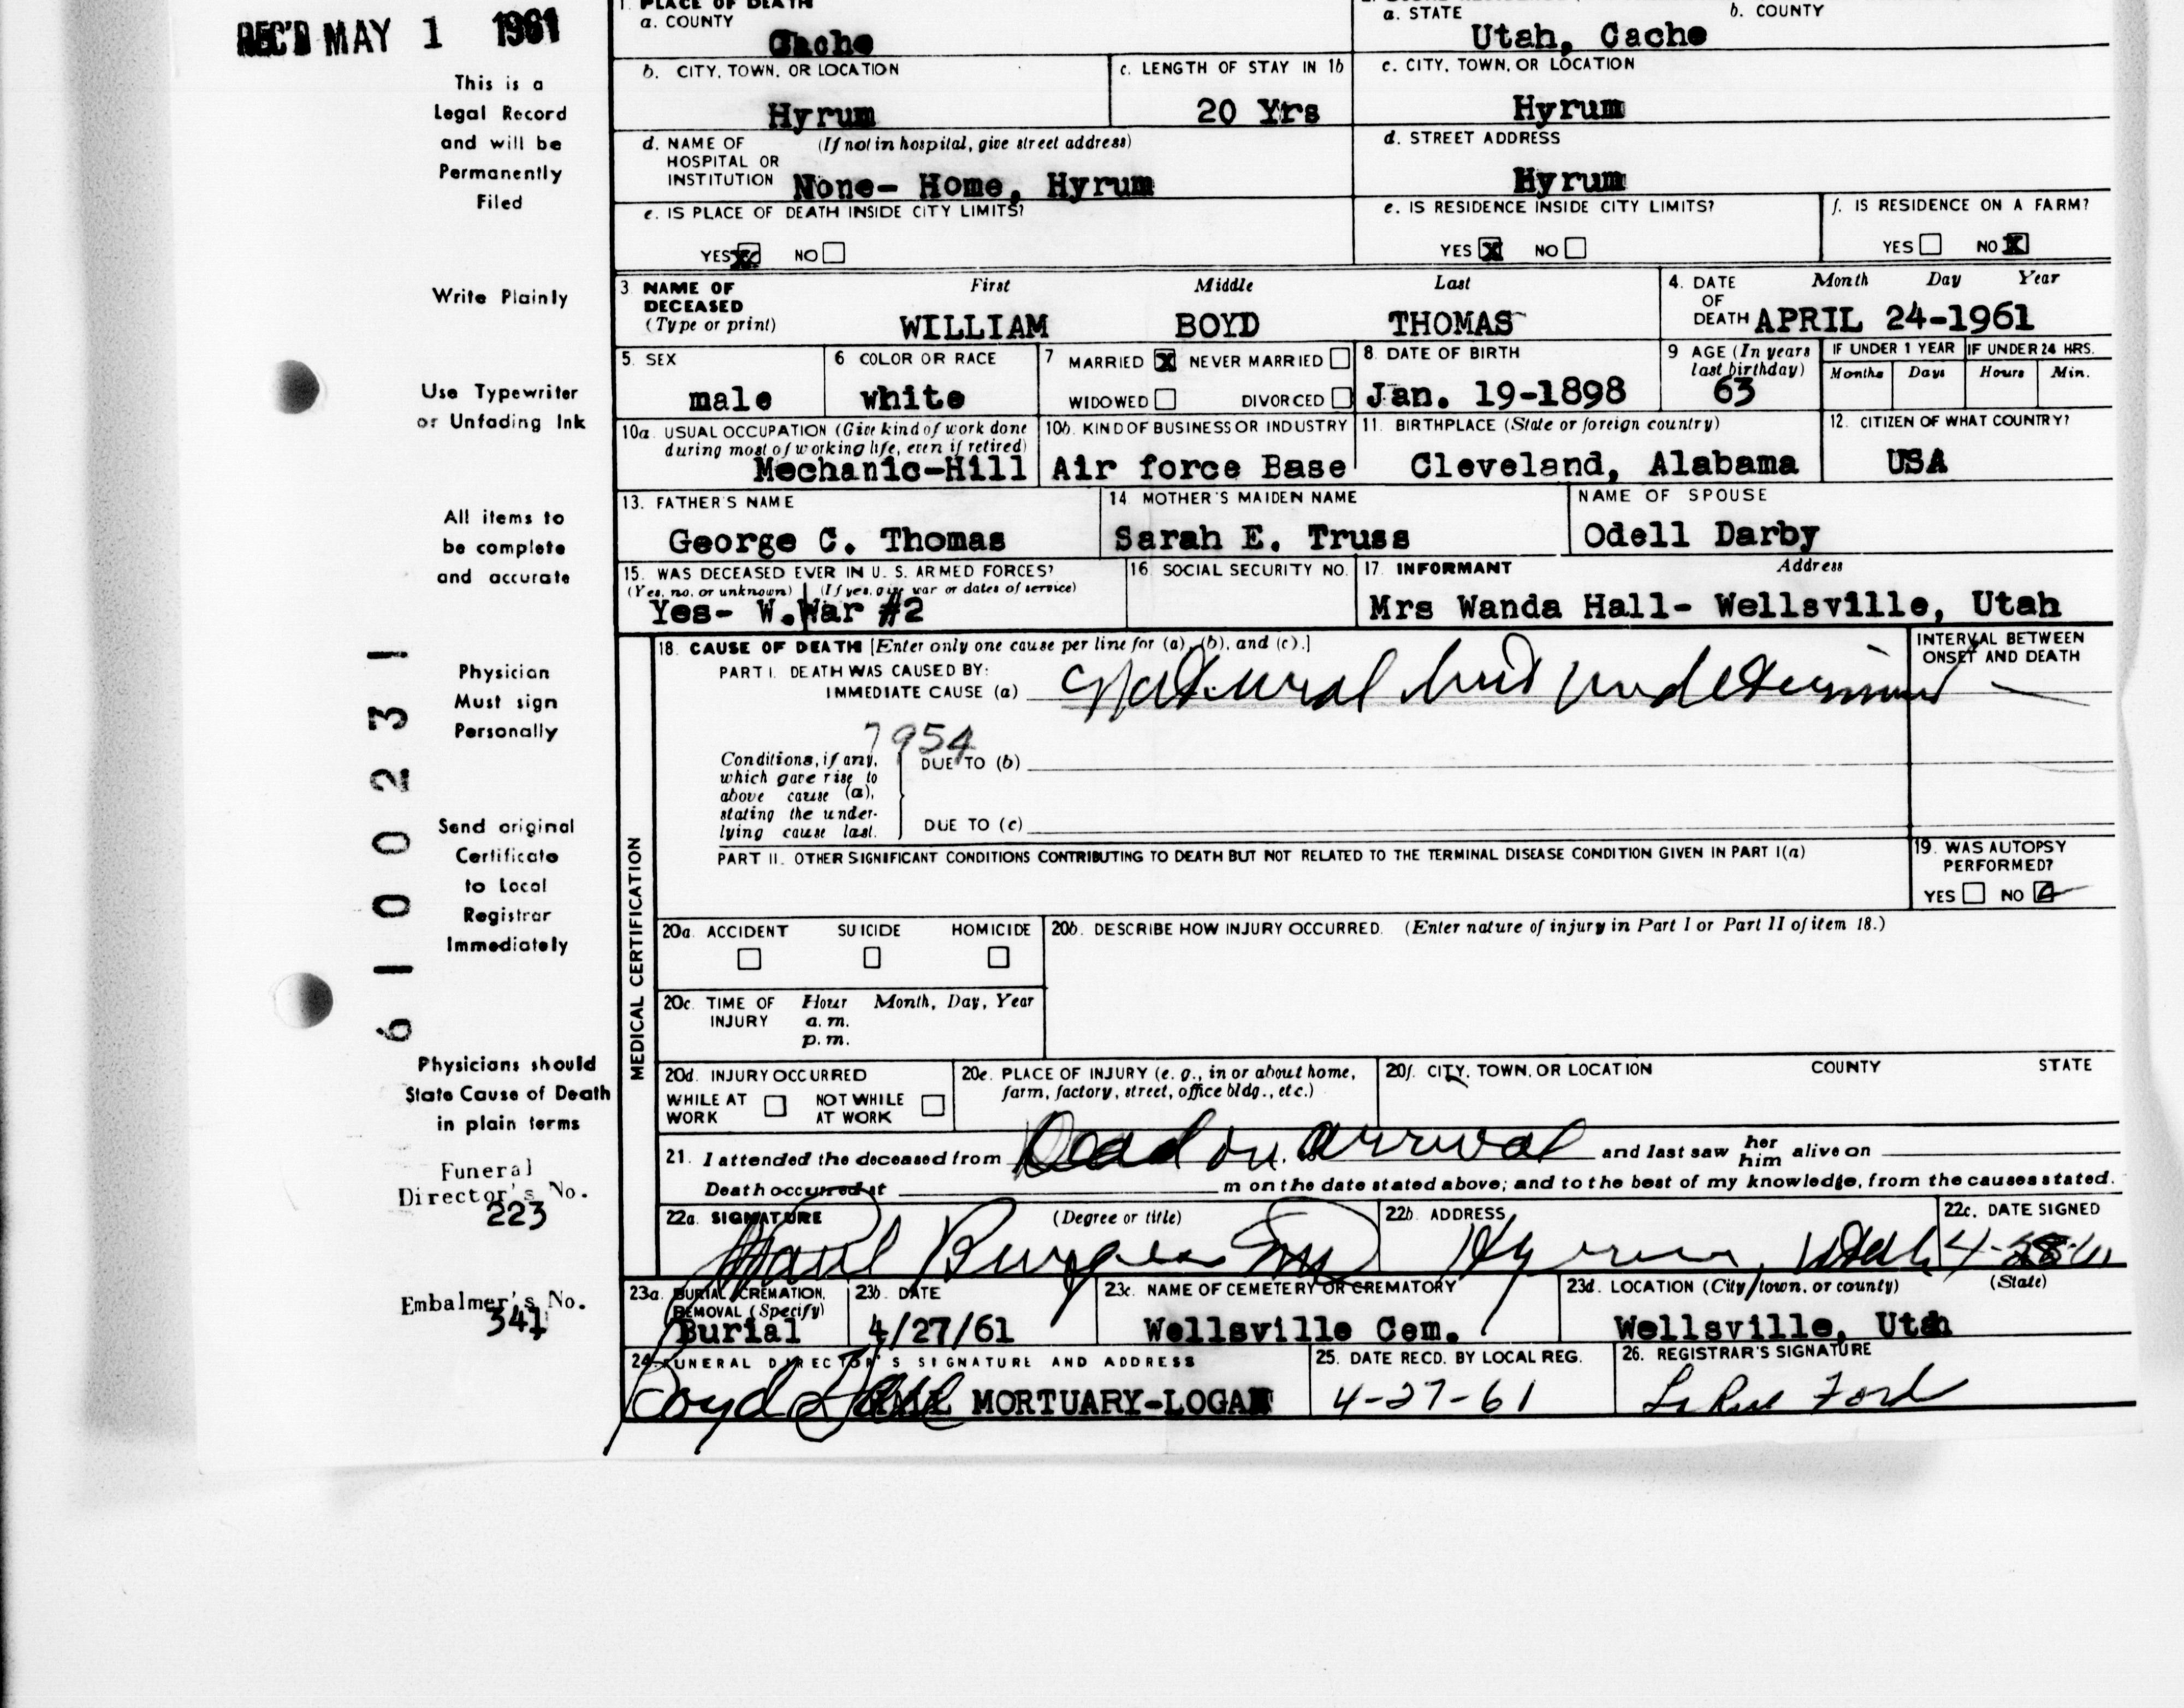 REC'D MAY 1 1961
1. PLACE OF DEATH
a. COUNTY
Cache
a. STATE b. COUNTY
Utah, Cache
b. CITY, TOWN, OR LOCATION
Hyrum
c. LENGTH OF STAY IN 1b
20 Yrs
c. CITY, TOWN, OR LOCATION
Hyrum
d. NAME OF HOSPITAL OR INSTITUTION (If not in hospital, give street address)
None- Home, Hyrum
d. STREET ADDRESS
Hyrum
e. IS PLACE OF DEATH INSIDE CITY LIMITS?
YES X NO
e. IS RESIDENCE INSIDE CITY LIMITS?
YES X NO
f. IS RESIDENCE ON A FARM?
YES NO X
3 NAME OF DECEASED (Type or print)
First Middle Last
WILLIAM BOYD THOMAS
4. DATE OF DEATH Month Day Year
APRIL 24-1961
5. SEX
male
6 COLOR OR RACE
white
7 MARRIED X NEVER MARRIED
WIDOWED DIVORCED
8. DATE OF BIRTH
Jan. 19-1898
9 AGE (In years last birthday)
63
IF UNDER 1 YEAR
Months Days
IF UNDER 24 HRS.
Hours Min.
10a. USUAL OCCUPATION (Give kind of work done during most of working life, even if retired)
Mechanic-Hill
10b. KIND OF BUSINESS OR INDUSTRY
Air force Base
11. BIRTHPLACE (State or foreign country)
Cleveland, Alabama
12. CITIZEN OF WHAT COUNTRY?
USA
13. FATHER'S NAME
George C. Thomas
14. MOTHER'S MAIDEN NAME
Sarah E. Truss
NAME OF SPOUSE
Odell Darby
15. WAS DECEASED EVER IN U. S. ARMED FORCES?
(Yes, no, or unknown) (If yes, give war or dates of service)
Yes- W.War #2
16. SOCIAL SECURITY NO.
17. INFORMANT Address
Mrs Wanda Hall- Wellsville, Utah
MEDICAL CERTIFICATION
18. CAUSE OF DEATH [Enter only one cause per line for (a), (b), and (c).]
PART I. DEATH WAS CAUSED BY:
IMMEDIATE CAUSE (a) Natural but undetermined
INTERVAL BETWEEN ONSET AND DEATH
7954
Conditions, if any, which gave rise to above cause (a), stating the underlying cause last.
DUE TO (b)
DUE TO (c)
PART II. OTHER SIGNIFICANT CONDITIONS CONTRIBUTING TO DEATH BUT NOT RELATED TO THE TERMINAL DISEASE CONDITION GIVEN IN PART I(a)
19. WAS AUTOPSY PERFORMED?
YES NO
20a. ACCIDENT SUICIDE HOMICIDE
20b. DESCRIBE HOW INJURY OCCURRED. (Enter nature of injury in Part I or Part II of item 18.)
20c. TIME OF INJURY Hour Month, Day, Year
a. m.
p. m.
20d. INJURY OCCURRED
WHILE AT WORK NOT WHILE AT WORK
20e. PLACE OF INJURY (e. g., in or about home, farm, factory, street, office bldg., etc.)
20f. CITY, TOWN, OR LOCATION COUNTY STATE
21. I attended the deceased from Dead on arrival and last saw her him alive on
Death occurred at m on the date stated above; and to the best of my knowledge, from the causes stated.
22a. SIGNATURE (Degree or title)
22b. ADDRESS
Hyrum, Utah
22c. DATE SIGNED
23a. BURIAL, CREMATION, REMOVAL (Specify)
Burial
23b. DATE
4/27/61
23c. NAME OF CEMETERY OR CREMATORY
Wellsville Cem.
23d. LOCATION (City, town, or county) (State)
Wellsville, Utah
24. FUNERAL DIRECTOR'S SIGNATURE AND ADDRESS
Boyd Hall HALL MORTUARY-LOGAN
25. DATE RECD. BY LOCAL REG.
4-27-61
26. REGISTRAR'S SIGNATURE
LaRue Ford
This is a
Legal Record
and will be
Permanently
Filed
Write Plainly
Use Typewriter
or Unfading Ink
All items to
be complete
and accurate
Physician
Must sign
Personally
Send original
Certificate
to Local
Registrar
Immediately
Physicians should
State Cause of Death
in plain terms
Funeral
Director's No.
223
Embalmer's No.
341
61 00231